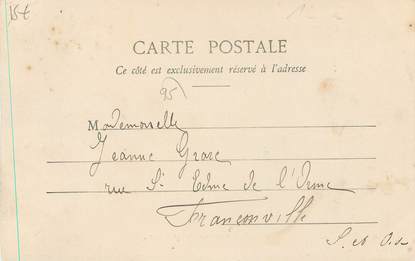 15€
CARTE POSTALE
Ce côté est exclusivement réservé à l'adresse
95
Mademoiselle
Jeanne
rue St Edme de l'Orme
Franconville
S. et O.